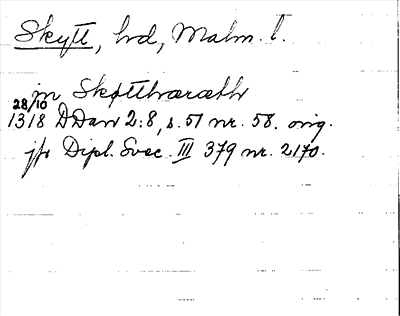 Skytt, hd, Malm. l.
in Skøtthæræth
28/10
1318 DDan 2:8, s. 51 nr. 58. orig.
jfr Dipl. Svec. III 379 nr. 2170.